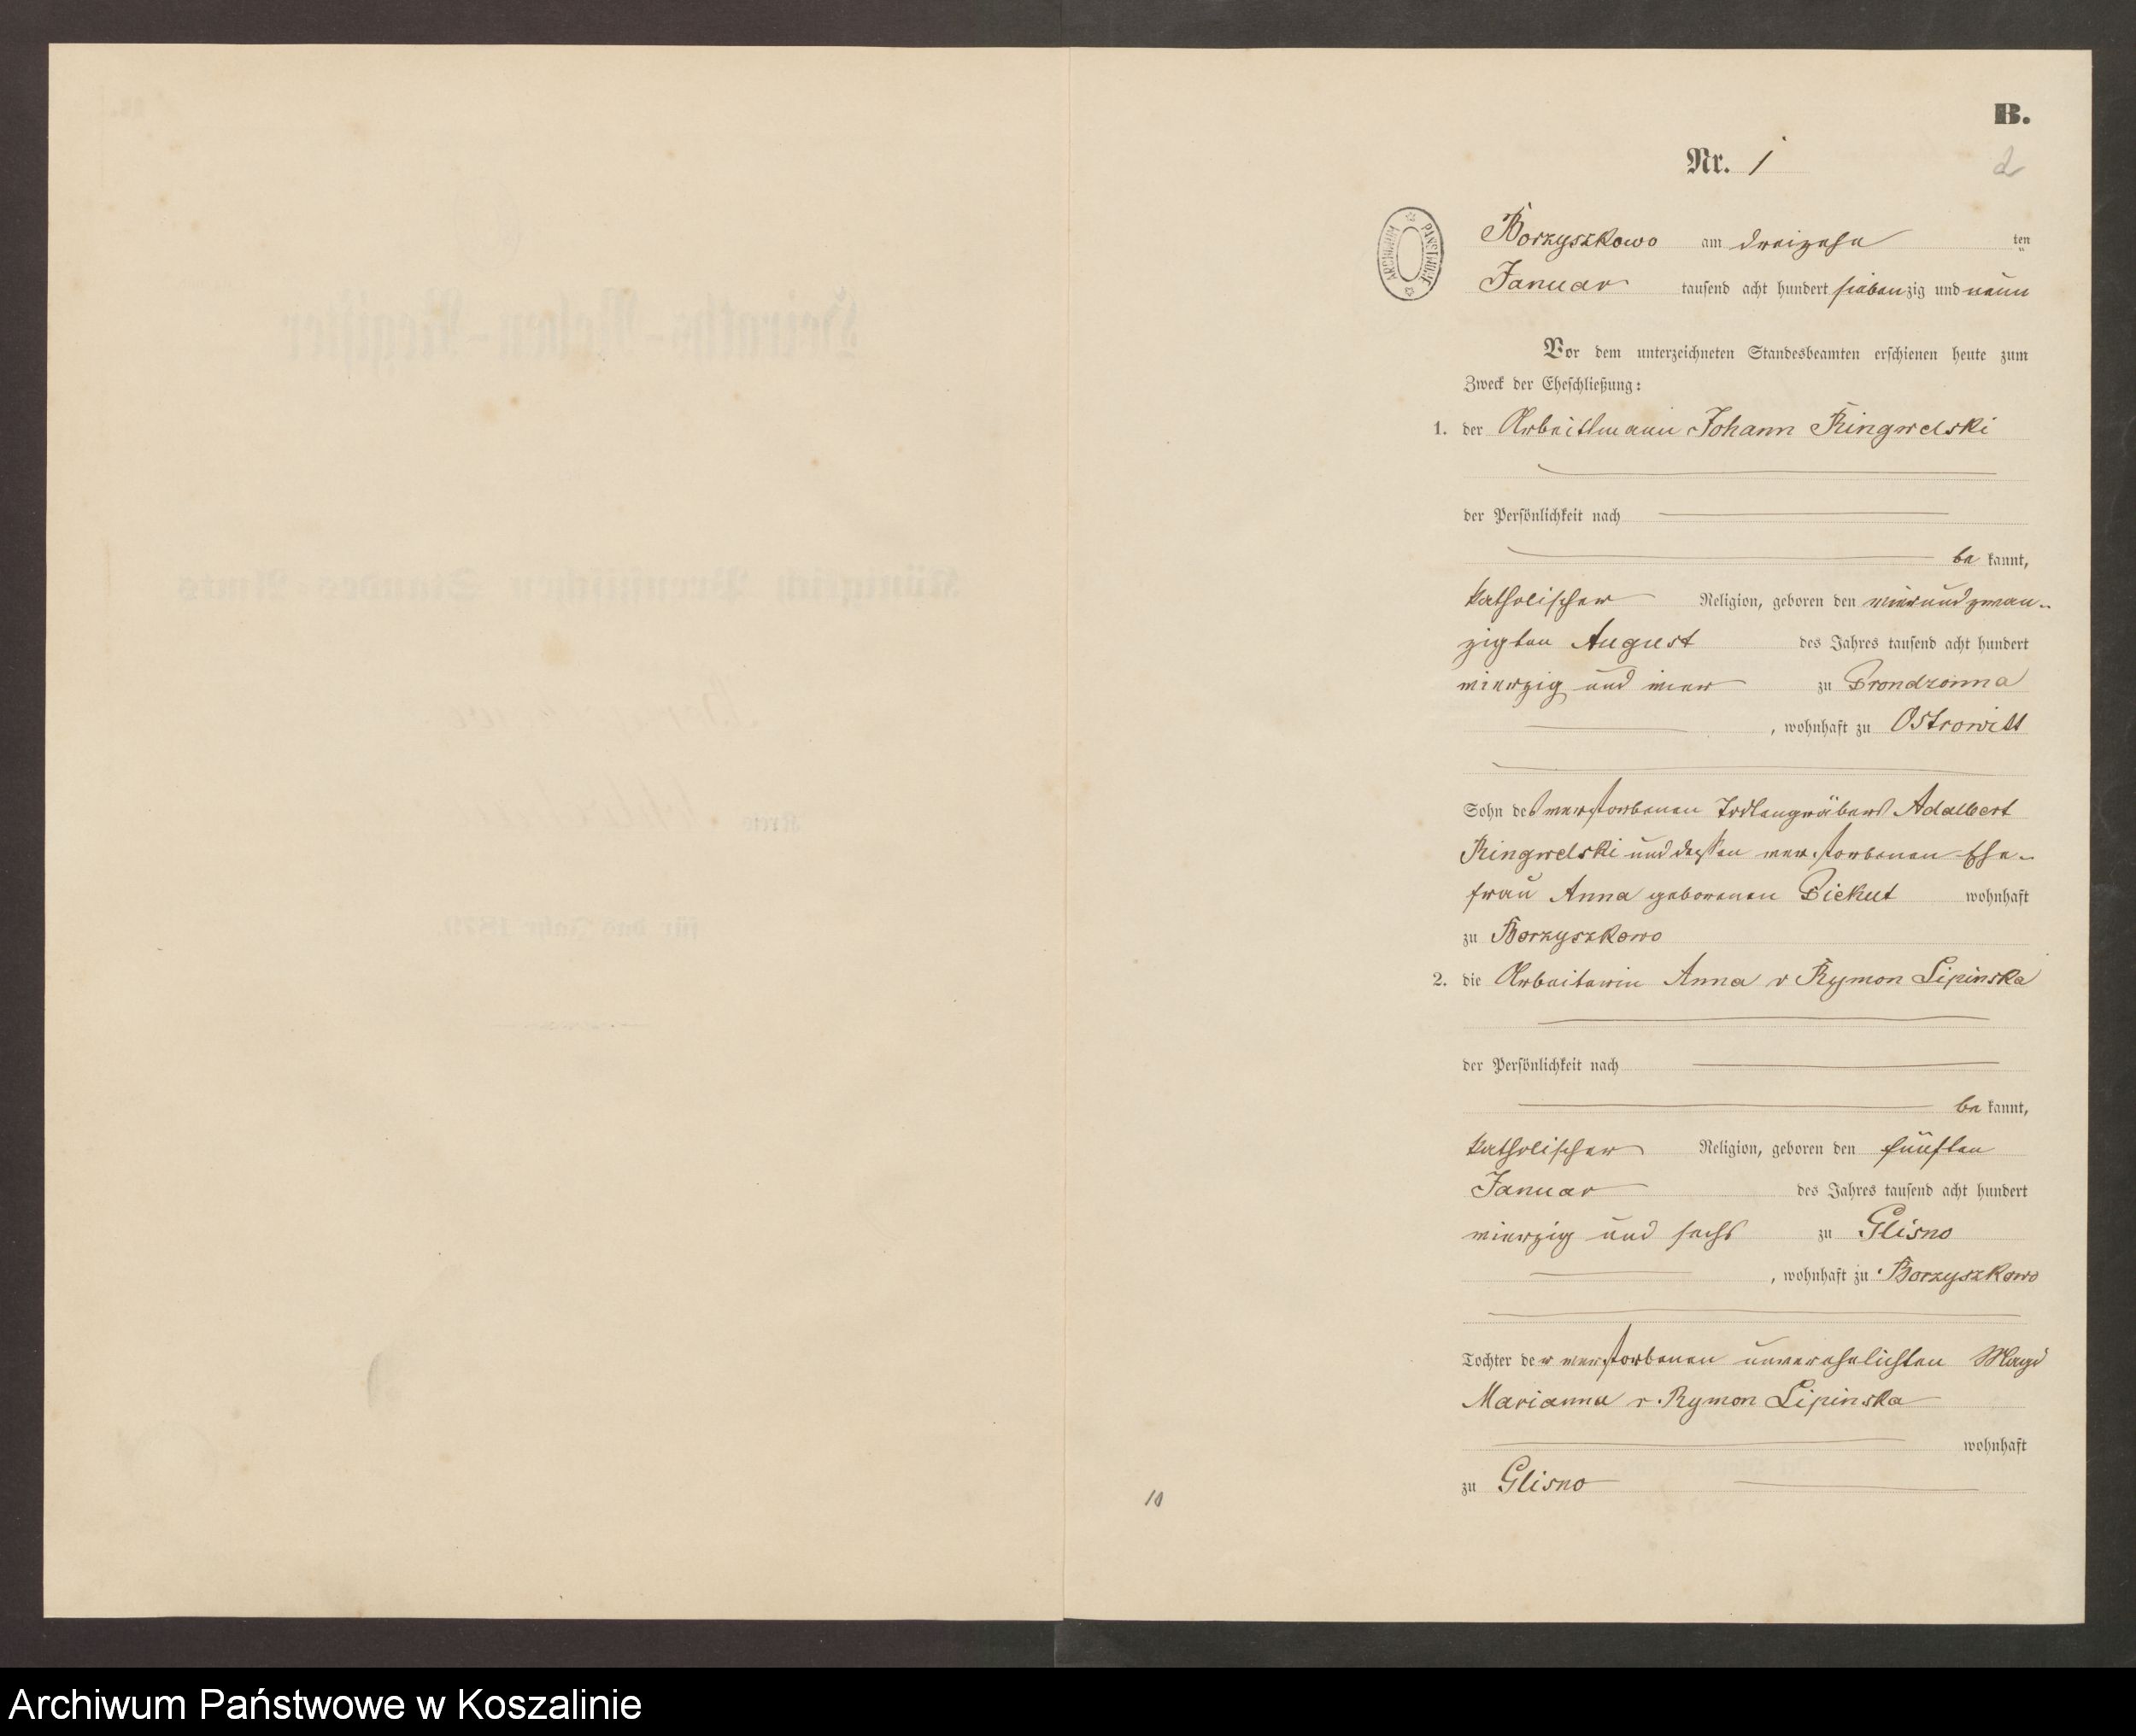 B.
Nr. 1
2
ARCHIWUM PAŃSTWOWE
Borzyszkowo am dreizehn ten
Januar tausend acht hundert siebenzig und neun
Vor dem unterzeichneten Standesbeamten erschienen heute zum
Zweck der Eheschließung:
1. der Arbeitsmann Johann Ringwelski
der Persönlichkeit nach
be kannt,
katholischer Religion, geboren den vierundzwan-
zigten August des Jahres tausend acht hundert
vierzig und vier zu Prondzonna
, wohnhaft zu Ostrowitt
Sohn des verstorbenen Adalbert
Ringwelski und dessen verstorbenen Ehe-
frau Anna geborenen Piekut wohnhaft
zu Borzyszkowo
2. die Arbeiterin Anna v Rymon Lipinska
der Persönlichkeit nach
be kannt,
katholischer Religion, geboren den fünften
Januar des Jahres tausend acht hundert
vierzig und sechs zu Glisno
, wohnhaft zu Borzyszkowo
Tochter der verstorbenen unverehelichten Magd
Marianna v. Rymon Lipinska
wohnhaft
zu Glisno
10
Archiwum Państwowe w Koszalinie